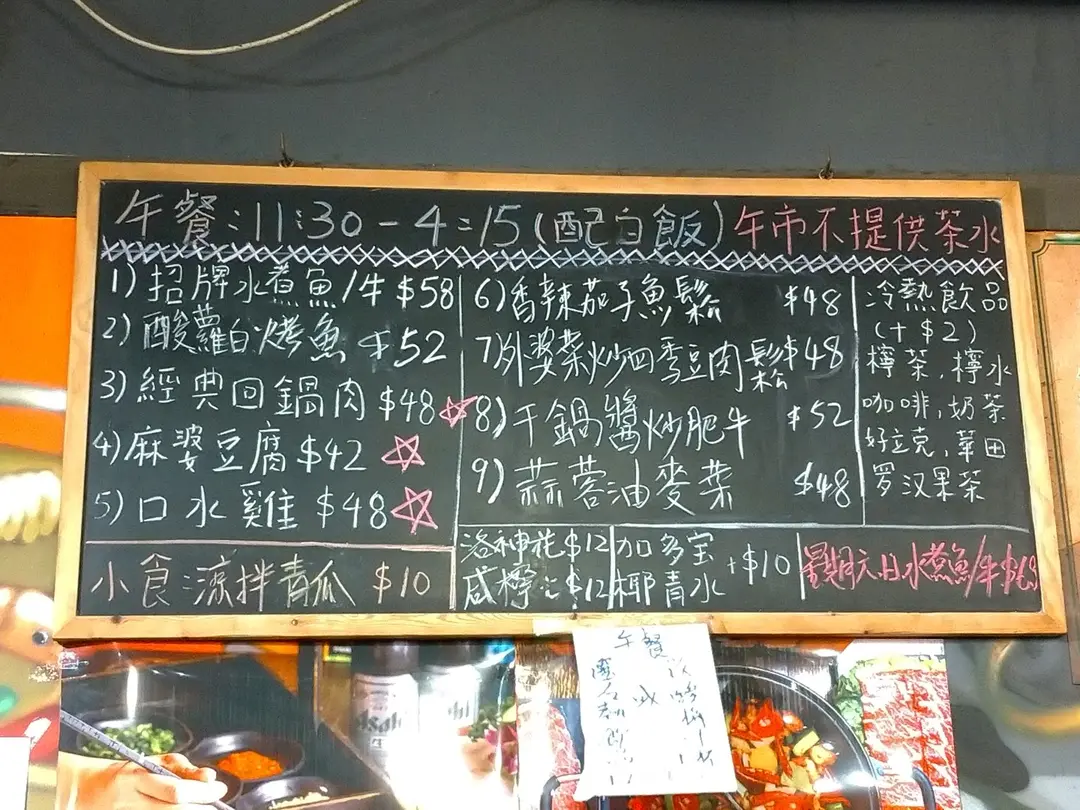 午餐:11:30-4:15(配白飯)午市不提供茶水
1)招牌水煮魚/牛$58
2)酸蘿白烤魚 $52
3)經典回鍋肉 $48
4)麻婆豆腐 $42
5)口水雞 $48
6)香辣茄子魚鬆 $48
7)外婆菜炒四季豆肉鬆$48
8)干鍋醬炒肥牛 $52
9)蒜蓉油麥菜 $48
冷熱飲品
(+$2)
檸茶,檸水
咖啡,奶茶
好立克,華田
罗汉果茶
小食:涼拌青瓜 $10
洛神花$12
咸檸:$12
加多宝
椰青水
+$10
星期六日水煮魚/牛$63
午餐
Asahi